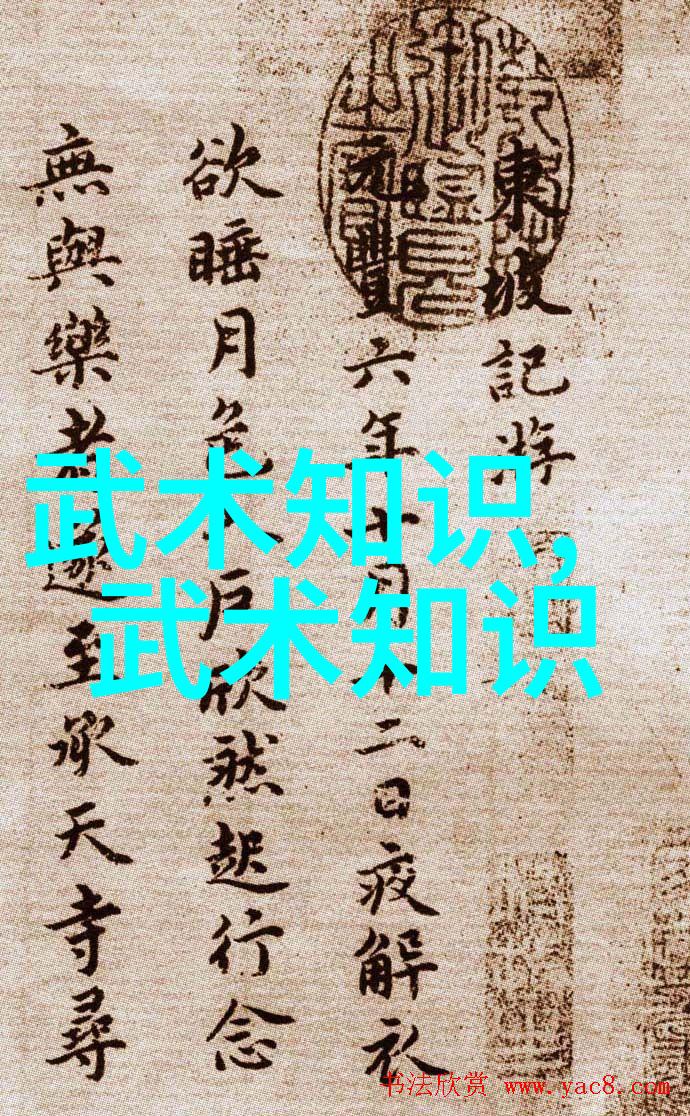 東坡記游
元豐六年十月十二日夜解衣
欲睡月色入戶欣然起行念
無與樂者遂至承天寺尋
武术知识,
武术知识
书法欣赏 www.yac8.com